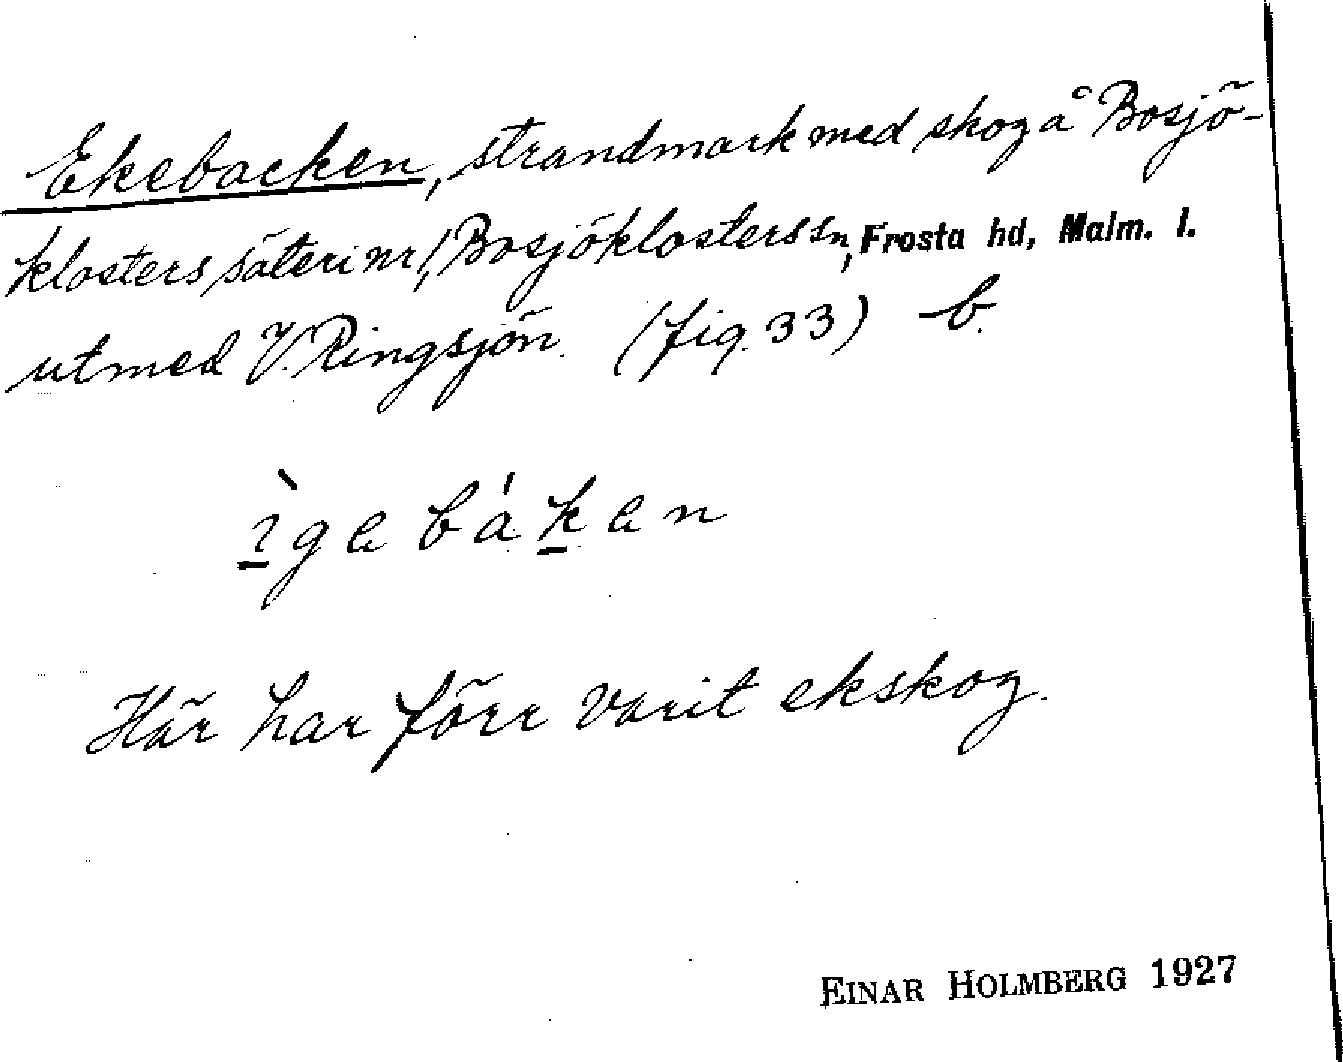 Ekebacken, strandmark med skog å Bosjö-
klosters säteri nr 1, Bosjöklosters sn, Frosta hd, Malm. l.
utmed V. Ringsjön. (fig. 33) b.
gebáken
Här har förr varit ekskog.
EINAR HOLMBERG 1927